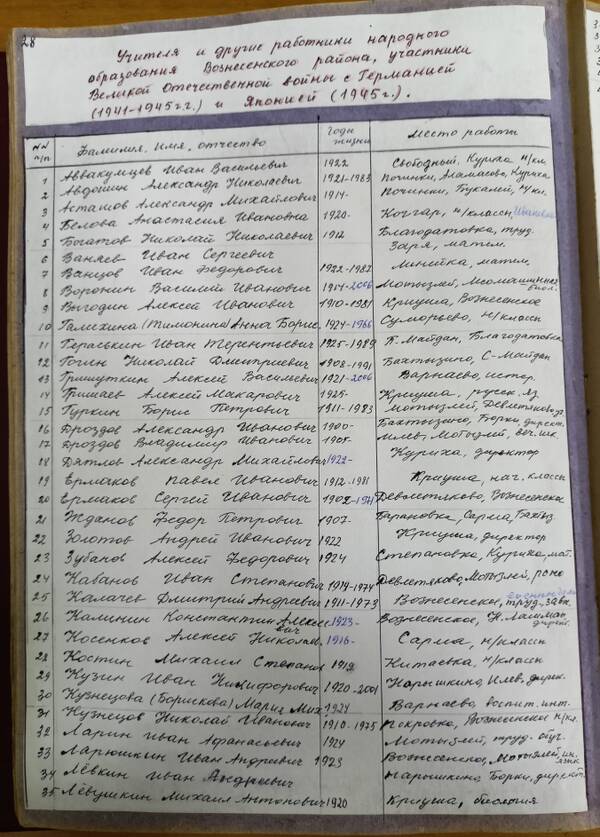 28
Учителя и другие работники народного
образования Вознесенского района, участники
Великой Отечественной войны с Германией
(1941-1945 г.г.) и Японией (1945 г.).
NN п/п Фамилия, имя, отчество Годы жизни Место работы
1 Аввакумцев Иван Васильевич 1922 Свободный, Куриха н/кл.
2 Авдошин Александр Николаевич 1921-1983 Починки, Аламасово, Куриха
3 Асташов Александр Михайлович 1914- Починки, Букалей, н/кл.
4 Белова Анастасия Ивановна 1920- н/классы
5 Богатов Николай Николаевич 1912 Благодатовка, труд.
6 Ваняев Иван Сергеевич Заря, матем.
7 Ванцов Иван Федорович 1922-1987 Линейка, матем.
8 Воронин Василий Иванович 1914-2006 Мотызлей,
9 Выгодин Алексей Иванович 1910-1981 Криуша, Вознесенское
10 Галихина (Тимонина) Анна Борис. 1924-1986 Суморьево, н/классы
11 Гераськин Иван Терентьевич 1925-1989 П. Майдан, Благодатовка
12 Гогин Николай Дмитриевич 1908-1991 Бахтызино, С-Майдан
13 Гришуткин Алексей Васильевич 1921-2006 Варнаево, истор.
14 Гришаев Алексей Макарович 1925- Криуша, русск. яз.
15 Гуркин Борис Петрович 1911-1983 Мотызлей, Девлетяково
16 Дроздов Александр Иванович 1900- Бахтызино, Борки, директ.
17 Дроздов Владимир Иванович 1905- Илев, Мотызлей,
18 Дятлов Александр Михайлович 1922- Куриха, директор
19 Ермаков Павел Иванович 1912-1981 Криуша, нач. классы
20 Ермаков Сергей Иванович 1902-1971 Девлетяково, Вознесенское
21 Жданов Федор Петрович 1907- Тарановка, Сарма, Бахтыз.
22 Золотов Андрей Иванович 1922 Криуша, директор
23 Зубанов Алексей Федорович 1924 Степановка, Куриха, мат.
24 Кабанов Иван Степанович 1919-1974 Девлетяково, Мотызлей, роно
25 Калачев Дмитрий Андреевич 1911-1973 Вознесенское, труд,
26 Калинин Константин Алексеевич 1923- Вознесенское, директ.
27 Косенков Алексей Николаев. 1916- Сарма, н/классы
28 Костин Михаил Степанов 1918 Китаевка, н/классы
29 Кузин Иван Никифорович 1920-2001 Нарышкино, Илев, дирек.
30 Кузнецова (Борискова) Мария Мих. 1924 Варнаево, воспит. инт.
31 Кузнецов Николай Иванович 1910-1975 Покровка, Вознесенское н/кл.
32 Ларин Иван Афанасьевич 1924 Мотызлей, труд. обуч.
33 Ларюшкин Иван Андреевич 1923 Вознесенское, Мотызлей, ин. язык
34 Лёвкин Иван Андреевич Нарышкино, Борки, директ.
35 Лёвушкин Михаил Антонович 1920 Криуша, биология